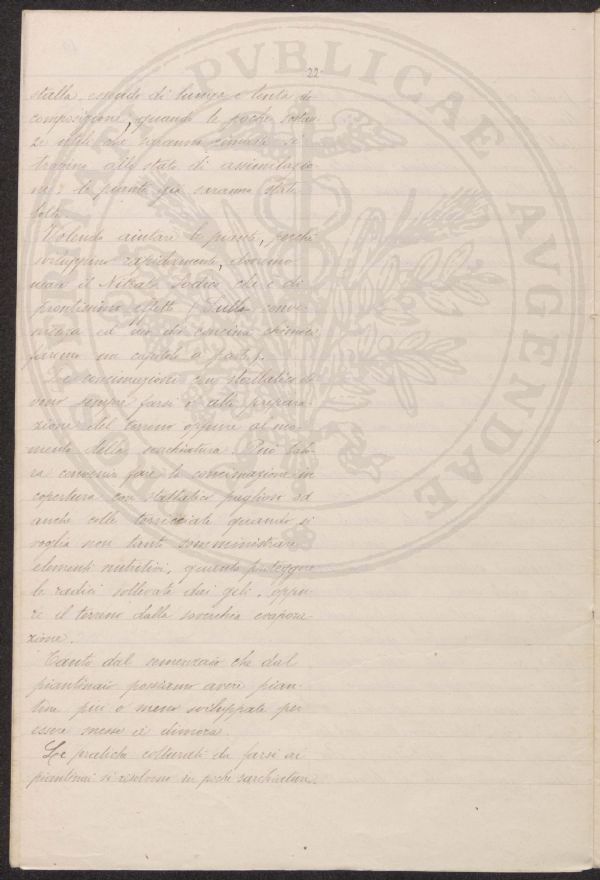 22
stalla, essendo di lunga e lenta de
composizione, quando le poche sostan
ze utili che saranno rimaste si
trovino allo stato di assimilazio
ne le piante già saranno state
tolte.
Volendo aiutare le piante, perchè
sviluppino rapidamente, dovremo
usare il Nitrato Sodico che è di
prontissimo effetto (Sulla conve
nienza ed uso dei concimi chimici
faremo un capitolo a parte).
Le concimazioni con stallatico de
vono sempre farsi o alla prepara-
zione del terreno oppure al mo-
mento della sarchiatura. Può talo-
ra convenir fare la concimazione in
copertura con stallatico paglioso od
anche colle terricciate quando si
voglia non tanto somministrare
elementi nutritivi, quanto proteggere
le radici sollevate dai geli, oppu-
re il terreno dalla soverchia evapora-
zione.
Tanto dal semenzaio che dal
piantinaio possiamo avere pian-
tine più o meno sviluppate per
essere messe a dimora.
Le pratiche colturali da farsi ai
piantinai si risolvono in poche sarchiature
PVBLICAE AVGENDAE